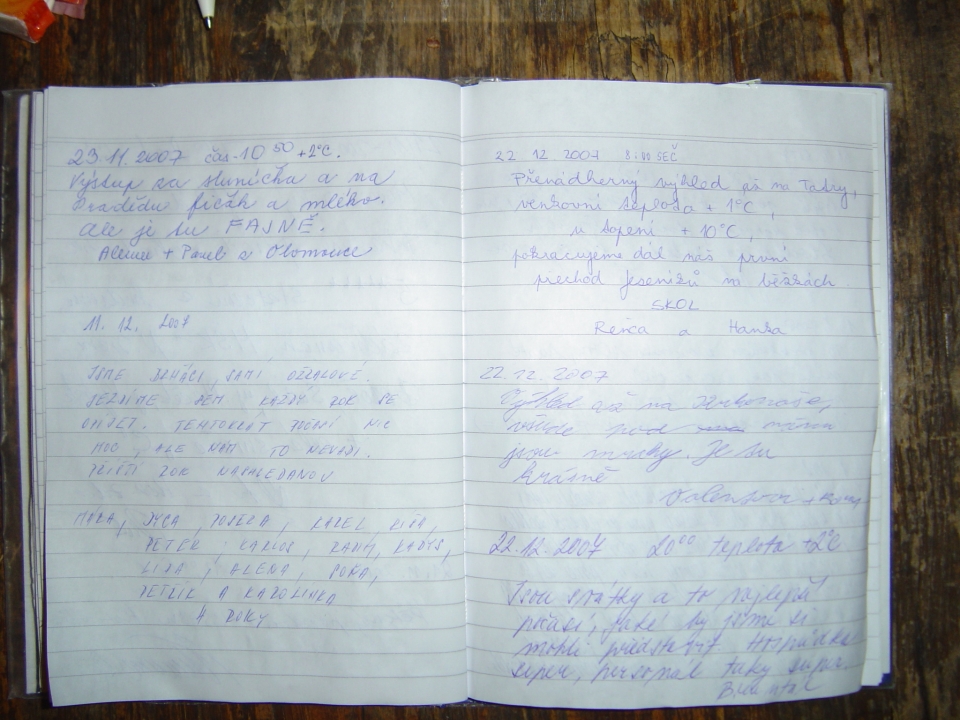 23.11.2007 čas-10⁵⁰ +2°C.
Výstup za slunécha a na
Pradědu fičák a mlého.
ale je tu FAJNĚ.
+ Pavel z Olomouce
11. 12. 2007
JSME BLHÁCI, SAMI
SEM KAŽDÝ ROK SE
TENTOKRÁT POČASÍ NIC
MOC, ALE NÁM TO NEVADÍ.
PŘÍŠTÍ ROK NASHLEDANOU
KAREL
PETER, KARLOS,
ALENA,
PETŘÍK A KAROLINKA
4 ROKY
22 12. 2007 8:00 SEČ
Přenádherný výhled až na Tatry,
venkovní teplota + 1°C,
u topení + 10°C,
pokračujeme dál náš první
přechod Jeseníků na běžkách
SKOL
Renča a Hanka
22.12.2007
Výhled až na Krkonoše,
všude pod náma
jsou mraky. Je tu
krásně
22.12.2007 20⁰⁰ teplota +2°C
Jsou svátky a to nejlepší
počasí, jaké by jsme si
mohli představit. Hospůdka
super, personál taky super.